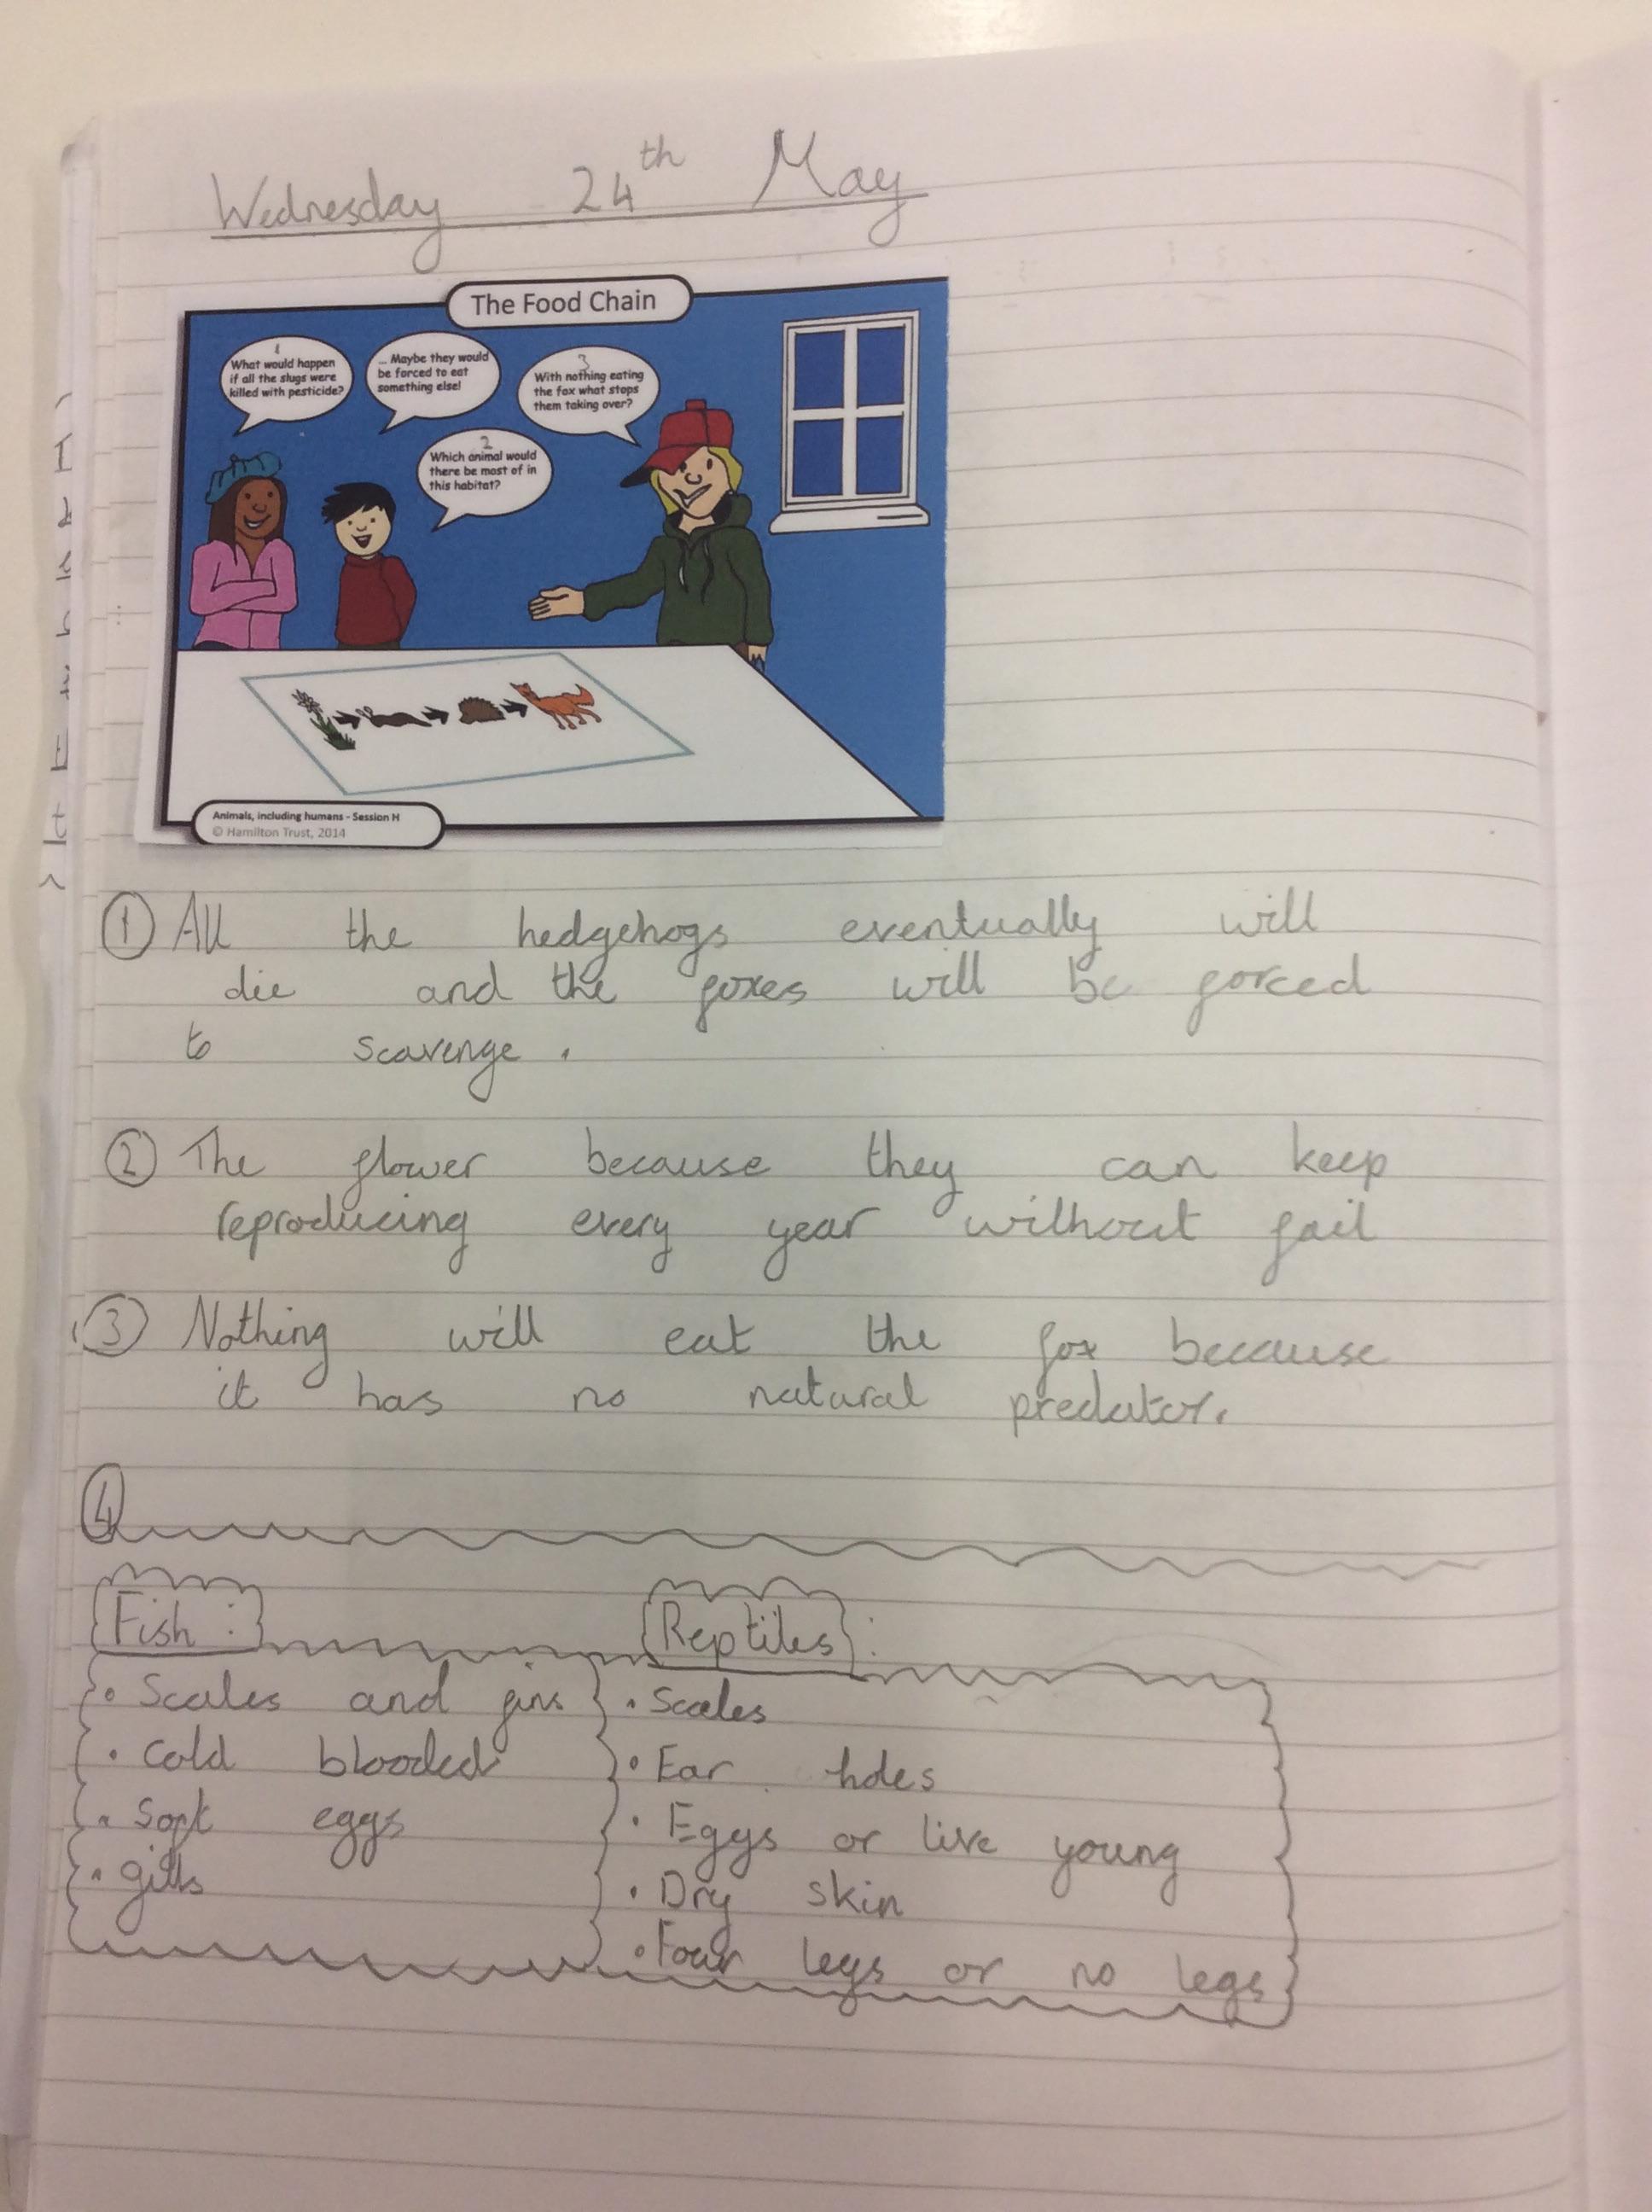 Wednesday 24th May
The Food Chain
1
What would happen
if all the slugs were
killed with pesticide?
... Maybe they would
be forced to eat
something else!
3
With nothing eating
the fox what stops
them taking over?
2
Which animal would
there be most of in
this habitat?
Animals, including humans - Session H
© Hamilton Trust, 2014
1 All the hedgehogs eventually will
die and the foxes will be forced
to scavenge.
2 The flower because they can keep
reproducing every year without fail
3 Nothing will eat the fox because
it has no natural predator.
4
Fish:
• Scales and fins
• Cold blooded
• Soft eggs
• gills
Reptiles:
• Scales
• Ear holes
• Eggs or live young
• Dry skin
• Four legs or no legs